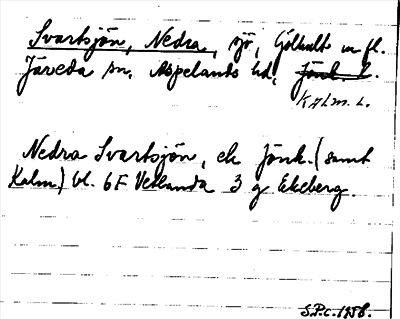 Svartsjön, Nedra, sjö, Gölhult m fl.
Järeda sn, Aspelands hd, Jönk. l.
Kalm. l.
Nedra Svartsjön, ek Jönk. (samt
Kalm) bl. 6F Vetlanda 3 g Ekeberg.
S.P.c. 1958.